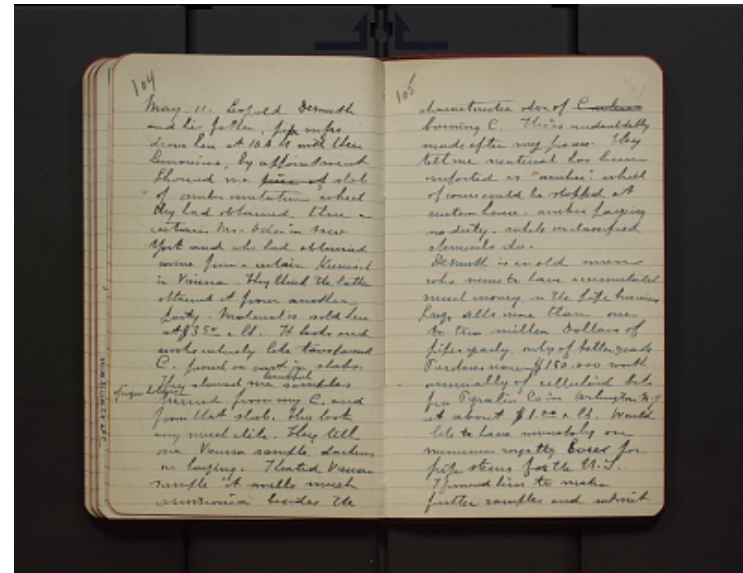 104
May. 11. Leopold Demuth
and his father, pipe mfrs
drove here at 10 A.M with their
Limousine, by appointment
Showed me piece of slab
of amber imitation which
they had obtained thru a
certain Mr. in New
York and who had obtained
some from a certain
in Vienna. They think the latter
obtained it from another
party. Material is sold here
at $3.50 a lb. It looks and
works entirely like transparent
C. found in cast in slabs.
They showed me beautiful samples
of cigar holders
turned from my C. and
from that slab. They look
very much alike. They tell
me Vienna sample darkens
on buying. I heated Vienna
sample it smells much
ammonia besides the
105
characteristic odor of C when
burning C. This is undoubtedly
made after my process. They
tell me material has been
imported as "amber". which
of course could be stopped at
custom house. amber paying
no duty. while unclassified
chemicals do.
Demuth is an old man
who seems to have accumulated
much money in the pipe business
Says sells more than one
to two million Dollars of
pipes yearly, only of better grade
Purchases now $150.000 worth
annually of celluloid bits
from Pyralin Co in Arlington N.J
at about $1.00 a lb. Would
like to have monopoly on
minimum royalty basis for
pipe stems for the U.S.
I promised him to make
further samples and submit